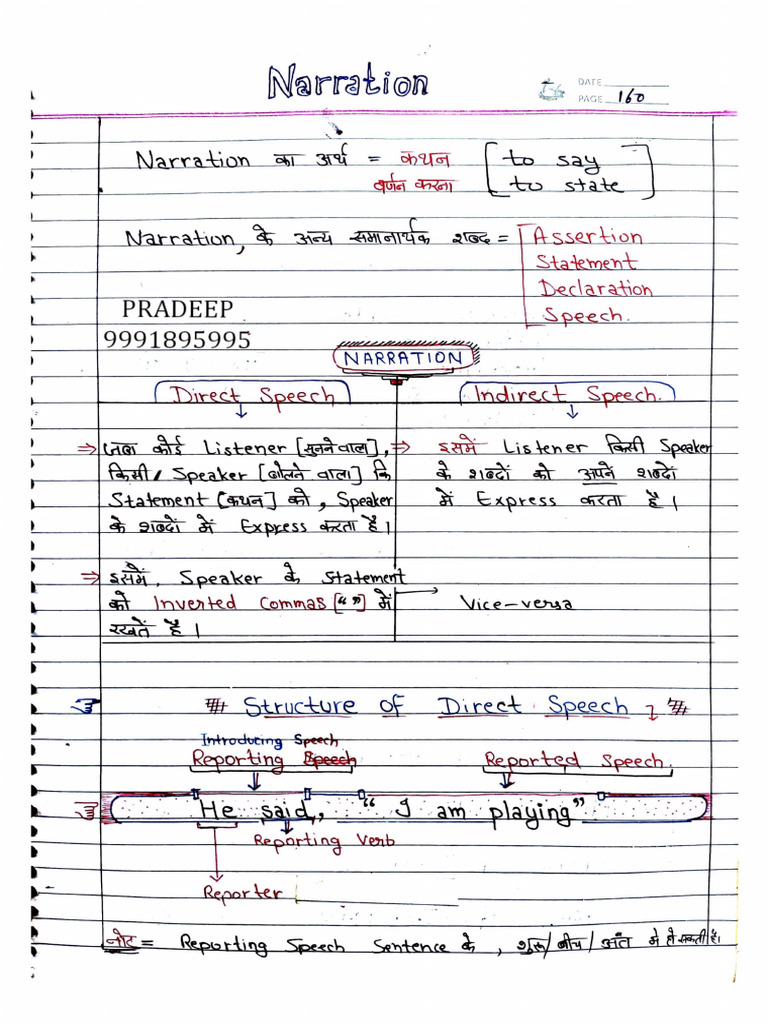 Narration
DATE
PAGE 160
Narration का अर्थ = कथन [to say
वर्णन करना to state]
Narration, के अन्य समानार्थक शब्द = [Assertion
Statement
Declaration
Speech.
PRADEEP
9991895995
NARRATION
Direct Speech
Indirect Speech.
⇒ जब कोई Listener [सुनने वाला],
किसी, Speaker [बोलने वाला] कि
Statement [कथन] को, Speaker
के शब्दों में Express करता है।
⇒ इसमें, Speaker के Statement
को Inverted Commas [“ ”] में
रखतें है।
⇒ इसमें Listener किसी Speaker
के शब्दों को अपने शब्दों
में Express करता है।
Vice-versa
Structure of Direct Speech
Introducing Speech
Reporting Speech
Reported Speech.
He said, “ I am playing”
Reporting Verb
Reporter
नोट = Reporting Speech Sentence के, शुरू/बीच/अंत मे हो सकती है।